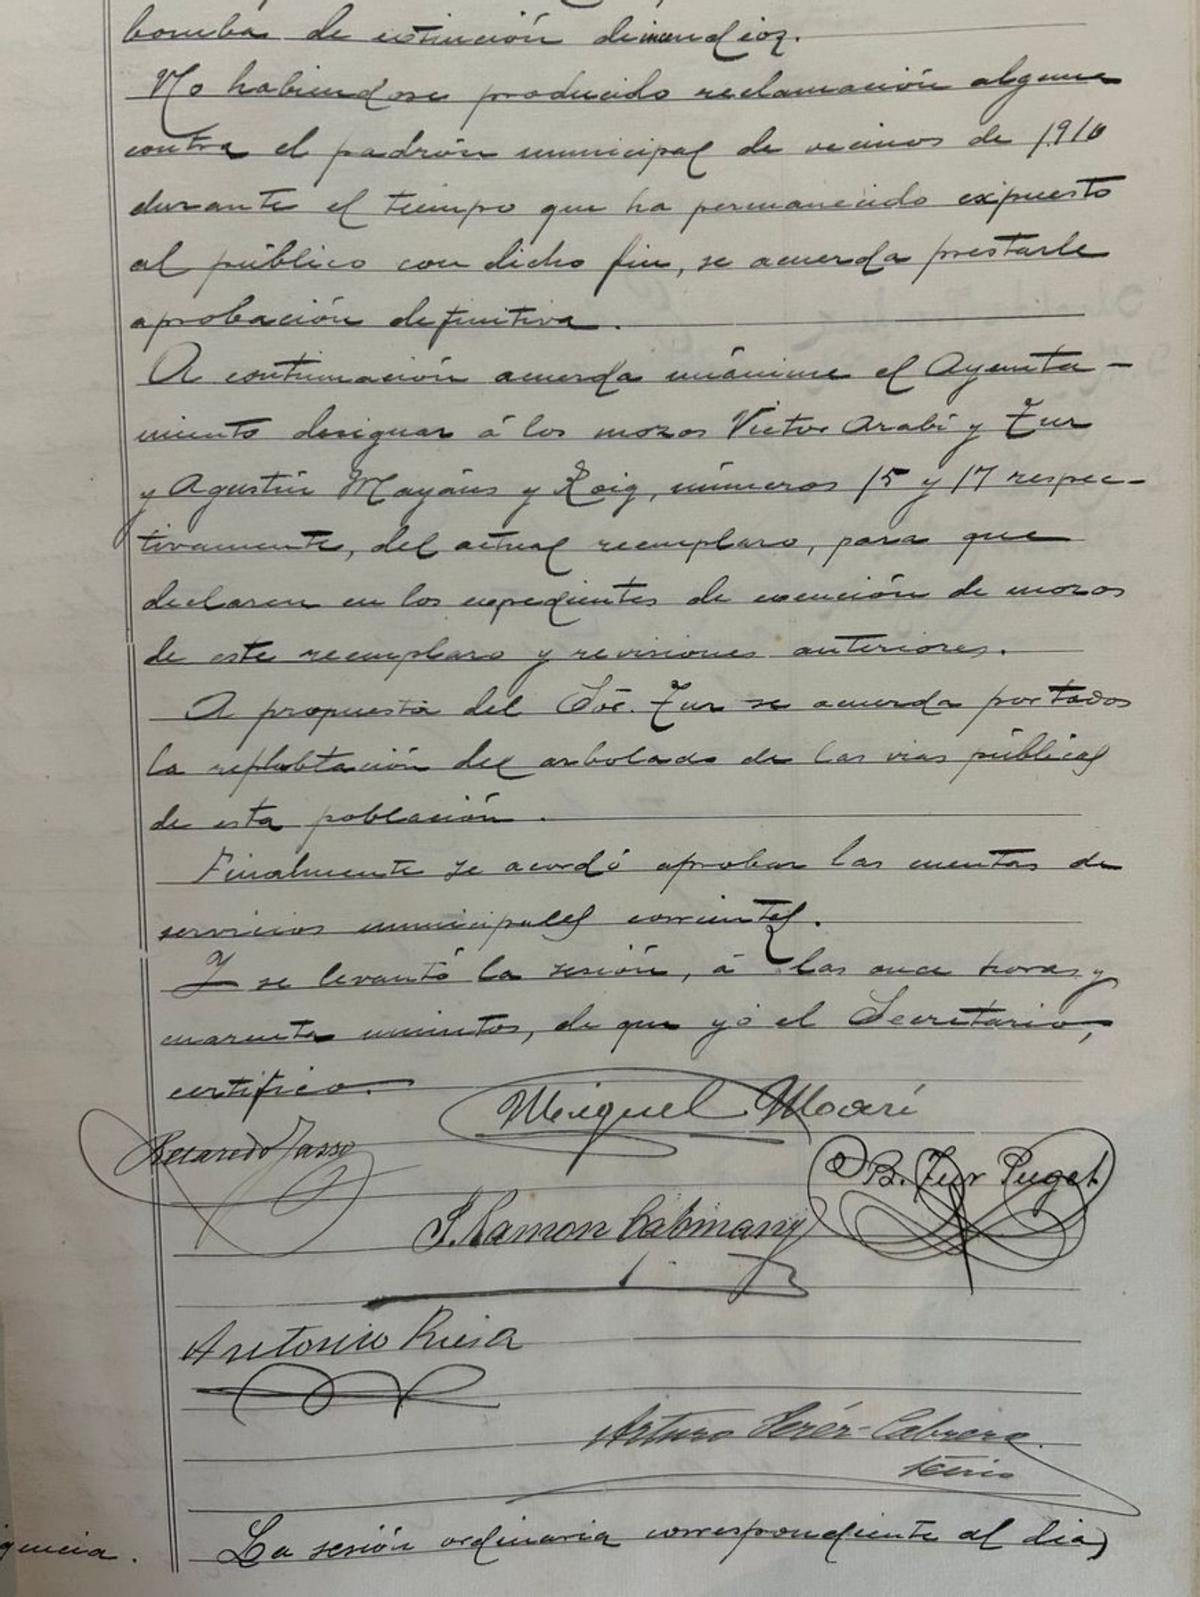 bomba de extinción de incendios.
No habiendose producido reclamación alguna
contra el padrón municipal de vecinos de 1910
durante el tiempo que ha permanecido expuesto
al público con dicho fin, se acuerda prestarle
aprobación definitiva.
A continuación acuerda unánime el Ayunta-
miento designar á los mozos Victor Arabí y Tur
y Agustín Mayáns y Roig, números 15 y 17 respec-
tivamente, del actual reemplazo, para que
declaren en los expedientes de exención de mozos
de este reemplazo y revisiones anteriores.
A propuesta del Sór. Tur se acuerda por todos
la replantación del arbolado de las vias públicas
de esta población.
Finalmente se acordó aprobar las cuentas de
servicios municipales corrientes.
Y se levantó la sesión, á las once horas y
cuarenta minutos, de que yó el Secretario,
certifico.
Miguel
Recaredo Jasso
B. Tur Puget
J. Ramon
Antonio Riera
Arturo Pérez-Cabrero
La sesión ordinaria correspondiente al dia